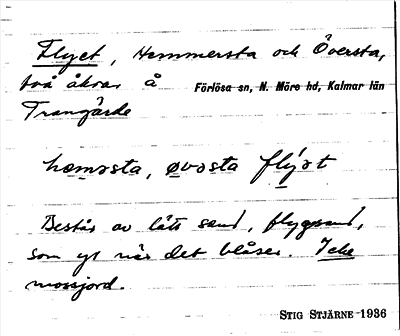 Flyet, Hemmersta och Översta,
två åkrar å Förlösa sn, N. Möre hd, Kalmar län
Trangärde
hæmərsta, øvəsta flýət
Består av lätt sand, flygsand,
som yr när det blåser. Icke
mossjord.
STIG STJÄRNE 1936